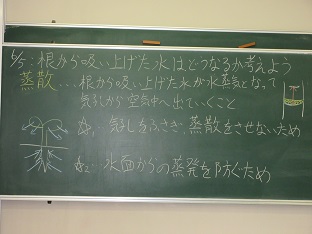 6/5：根から吸い上げた水は、どうなるか考えよう
蒸散…根から吸い上げた水が水蒸気となって
気孔から空気中へ出ていくこと
…気孔をふさぎ、蒸散をさせないため
…水面からの蒸発を防ぐため